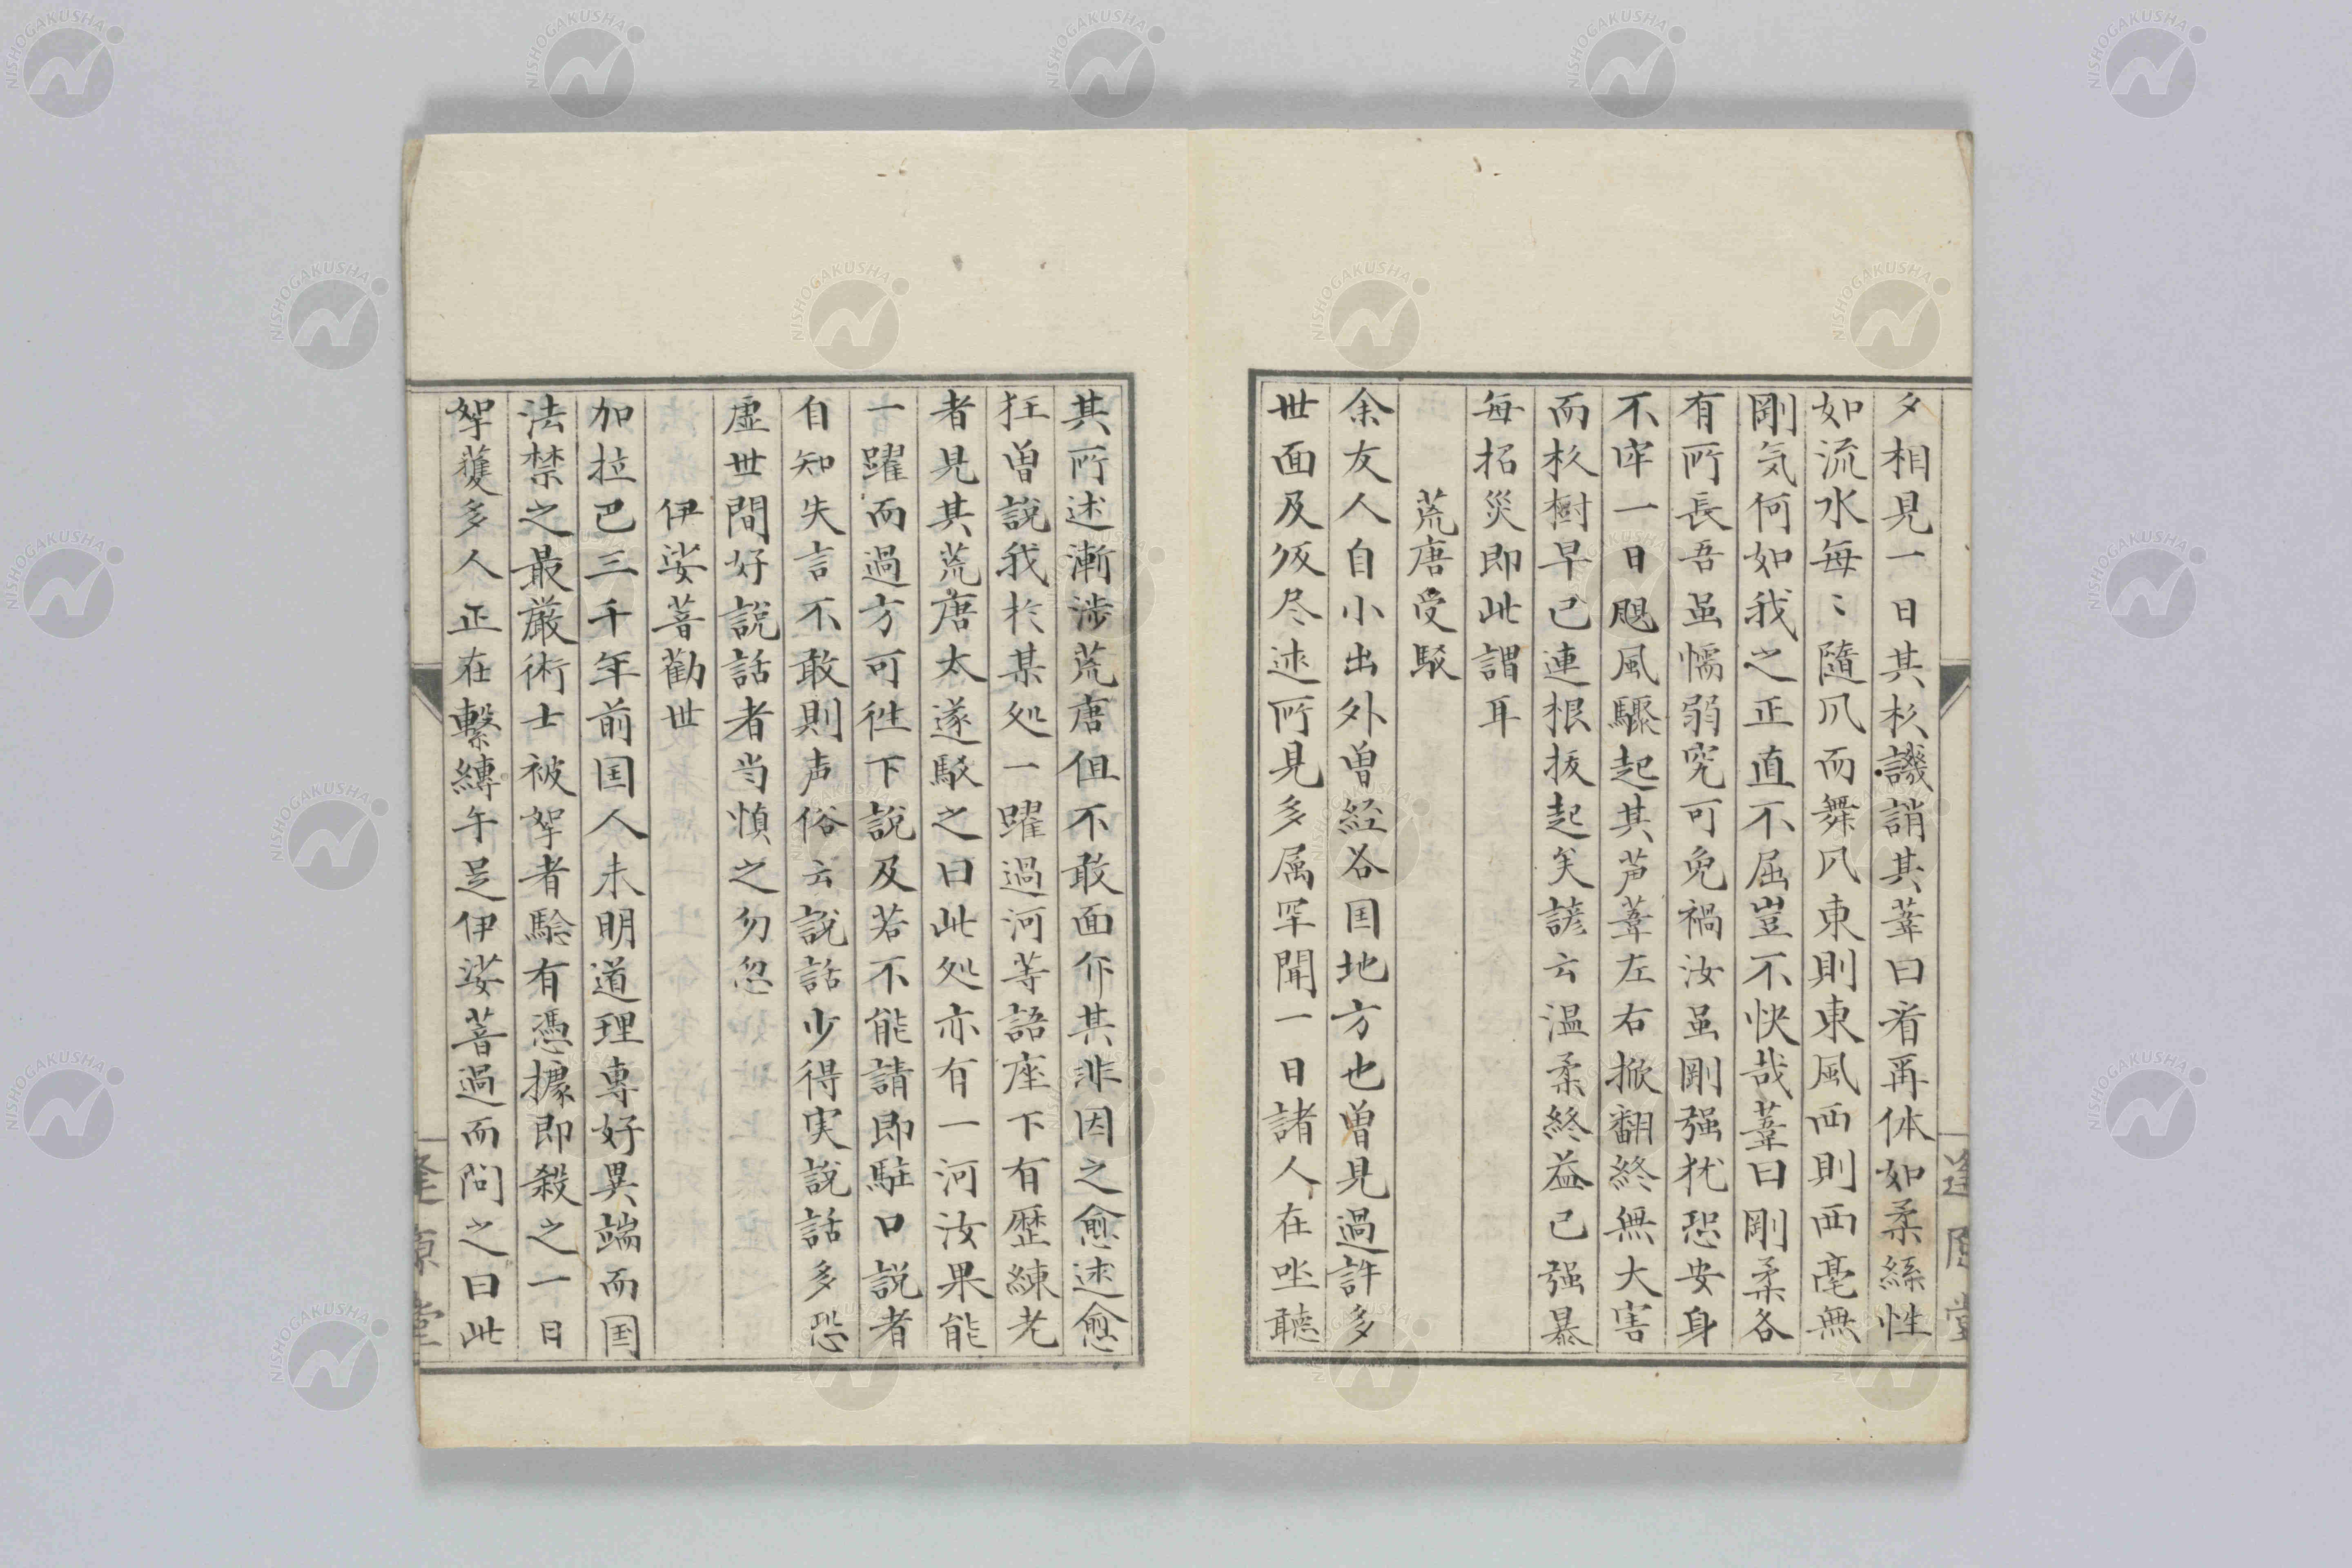 夕相見一日其杉譏誚其葦曰看再体如柔絲性
如流水每〻隨风而舞风東則東風西則西毫無
剛気何如我之正直不屈豈不快哉葦曰剛柔各
有所長吾虽懦弱究可免禍汝虽剛强犹恐安身
不牢一日颶風驟起其芦葦左右掀翻終無大害
而杉樹早已連根拔起矣諺云温柔終益己强暴
每招災即此謂耳
荒唐受駁
余友人自小出外曽経各国地方也曽見過許多
世面及返尽述所見多属罕聞一日諸人在坐聽
其所述漸涉荒唐但不敢面斥其非因之愈述愈
狂曽說我於某処一躍過河等語座下有歴練老
者見其荒唐太遂駁之曰此処亦有一河汝果能
一躍而過方可徃下說及若不能請即駐口說者
自知失言不敢則声俗云說話少得実說話多恐
虛世間好說話者当慎之勿忽
伊娑菩勸世
加拉巴三千年前国人未明道理專好異端而国
法禁之最厳術士被拏者驗有憑據即殺之一日
拏獲多人正在繫縛手足伊娑菩過而问之曰此
逢原堂
NISHOGAKUSHA